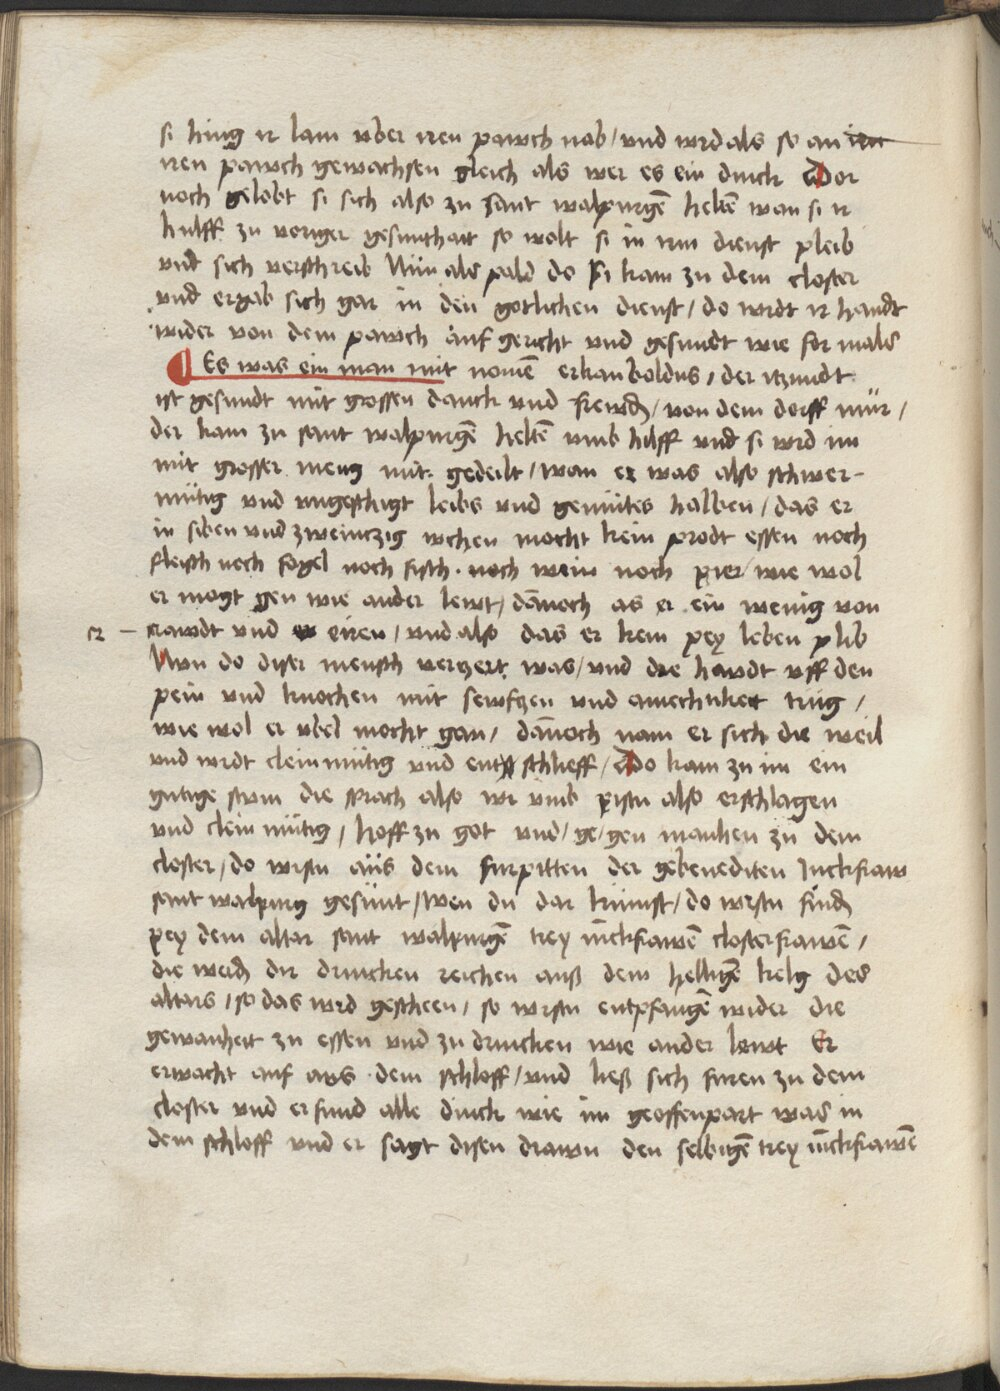 si hing ir lam vber iren pawch nab / vnd wrd als so an
iren pawch gewachsen gleich als wer es ein dinck Dor
noch gelobt si sich also zu sant walpurgē heltē wan si ir
hulff zu voriger gesunthait so wolt si in irm dienst pleib
vnd sich verschreib Nun als pald do si kam zu dem closter
vnd ergab sich gar in den gotlichen dienst / do wrdt ir handt
wider von dem pawch auf gericht vnd gesundt wie for mals
Es was ein man mit nomē erkanboldus / der itzundt
ist gesundt mit grossen danck vnd frewd / von dem dorff mür /
der kam zu sant walpurgē heltē vmb hilff vnd si wrd im
mit grosser meng mit gedeilt / wan er was also schwer-
mütig vnd vngeschigt leibs vnd gemütes halben / das er
in siben vnd zweinczig wchen mocht kein prodt essen noch
fleisch noch fogel noch fisch . noch wein noch pier / wie wol
er mogt gen wie ander lewt / dānoch as er ein wenig von
r – krawdt vnd eiren / vnd also das er kem pey leben plib
Nun do diser mensch verzert was / vnd die hawdt vff den
pein vnd knochen mit sewfzen vnd amechtikeit trug /
wie wol er vbel mocht gan / dānoch nam er sich die weil
vnd wrdt cleinmütig vnd ent schlieff / Do kam zu im ein
gutige stim die sprach also wr vmb pistu also erschlagen
vnd clein mütig / hoff zu got vnd / ge / gen manhen zu dem
closter / do wrstu aüs dem furpitten der gebenediten Junckfraw
sant walpurg gesünt / wen du dar kümst / do wrstu find
pey dem altar sant walpurgē trey iūckfrawē closterfrawē /
die werd dir drincken reichen auß dem helligē kelg des
altars / so das wrd gescheen / so wrstu entpfangē wider die
gewanheit zu essen vnd zu drincken wie ander lewt Er
erwacht auf aws dem schloff / vnd ließ sich furen zu dem
closter vnd erfund alle dinck wie im geoffenpart was in
dem schloff vnd er sagt disen drawm den selbigē trey iūckfrawē